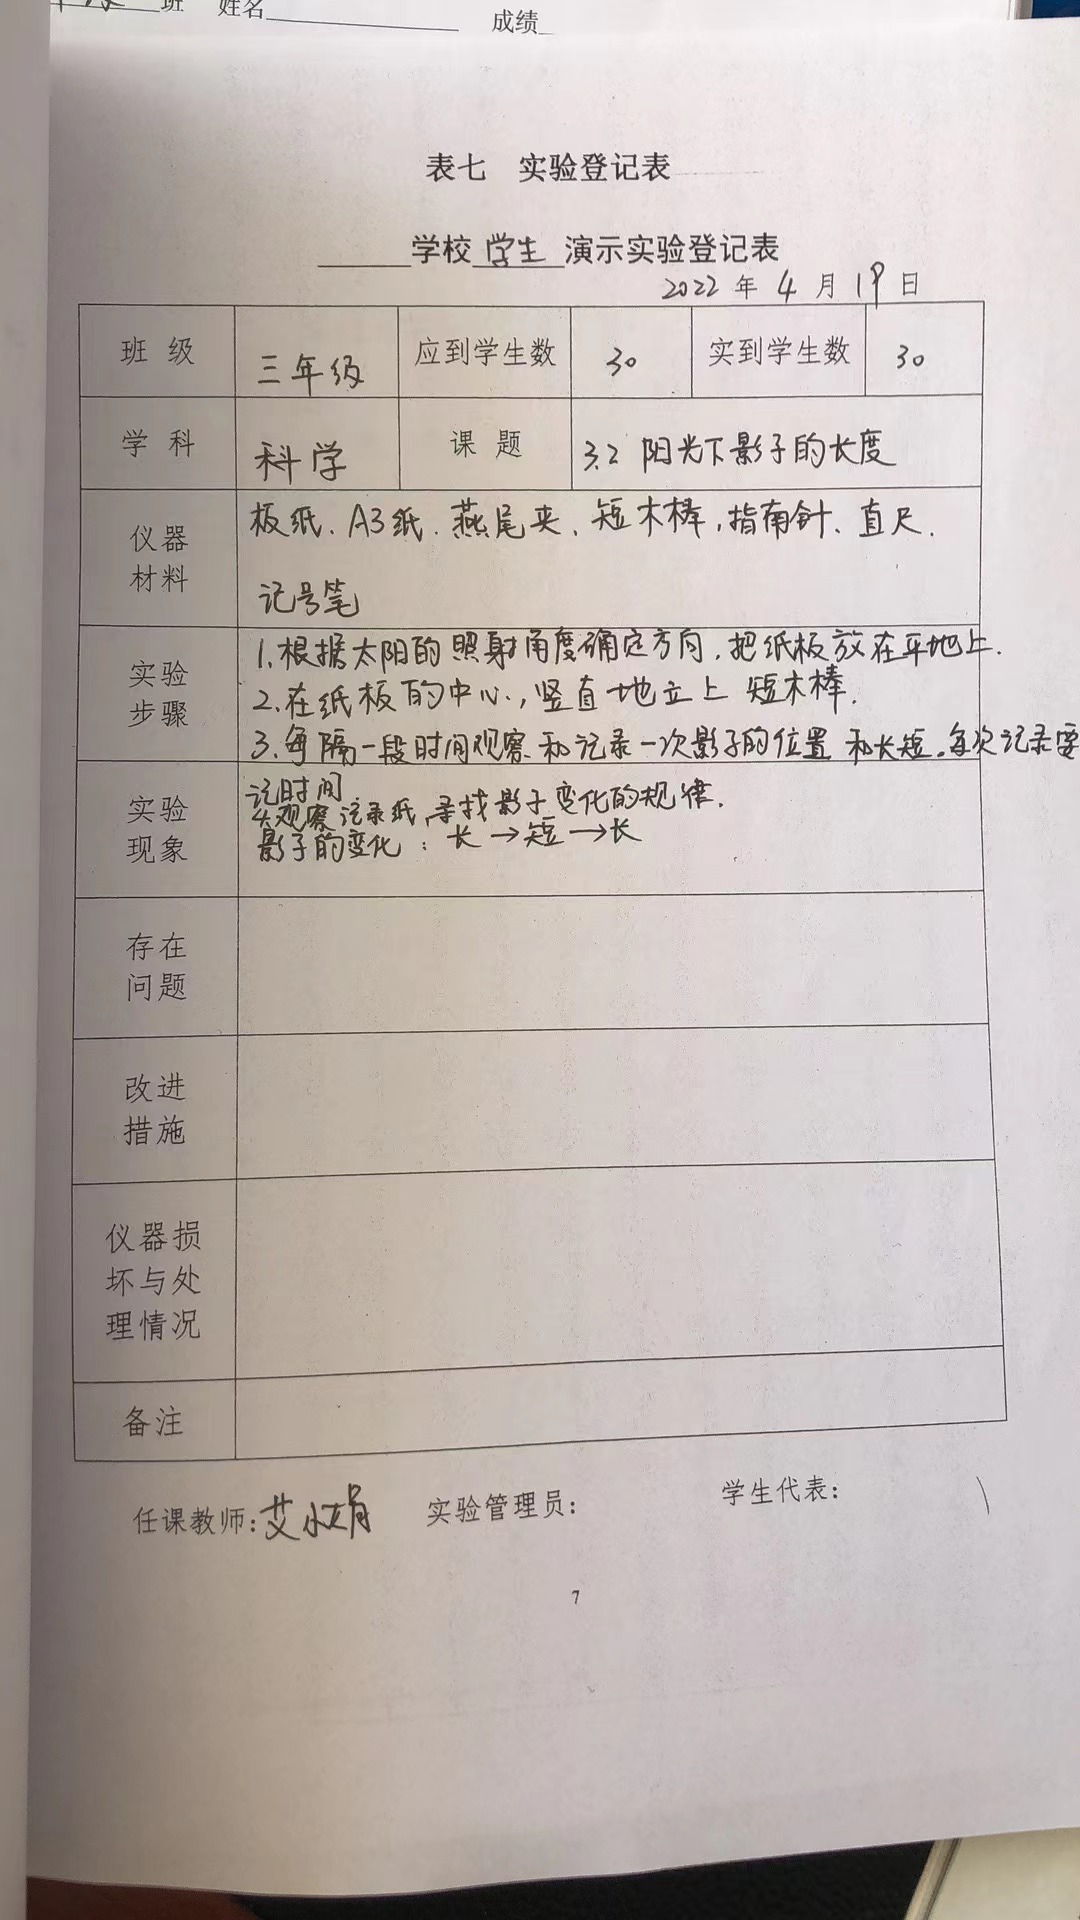 班 姓名
成绩
表七 实验登记表
学校 学生 演示实验登记表
2022 年 4 月 19 日
班 级 三年级 应到学生数 30 实到学生数 30
学 科 科学 课 题 3.2 阳光下影子的长度
仪器材料
板纸、A3纸、燕尾夹、短木棒,指南针、直尺.
记号笔
实验步骤
1.根据太阳的照射角度确定方向,把纸板放在平地上.
2.在纸板的中心,竖直地立上短木棒.
3.每隔一段时间观察和记录一次影子的位置和长短。每次记录要
记时间
实验现象
4.观察记录纸,寻找影子变化的规律.
影子的变化:长→短→长
存在问题
改进措施
仪器损坏与处理情况
备注
任课教师:艾小娟 实验管理员: 学生代表:
7